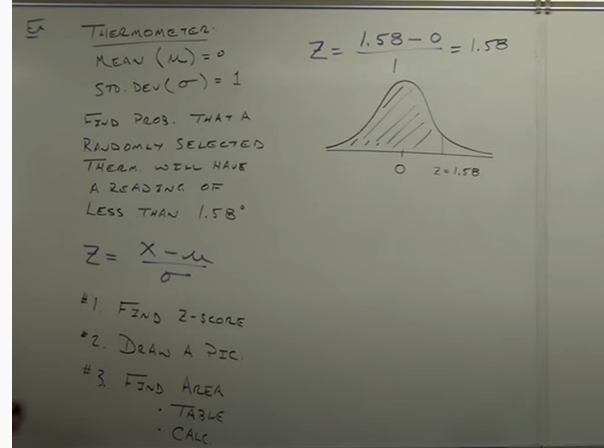 Ex THERMOMETER.
MEAN (μ) = 0
STD. DEV (σ) = 1
FIND PROB. THAT A
RANDOMLY SELECTED
THERM. WILL HAVE
A READING OF
LESS THAN 1.58°
Z = X - μ / σ
#1. FIND Z-SCORE
#2. DRAW A PIC.
#3. FIND AREA
· TABLE
· CALC
Z = 1.58 - 0 / 1 = 1.58
0 Z=1.58